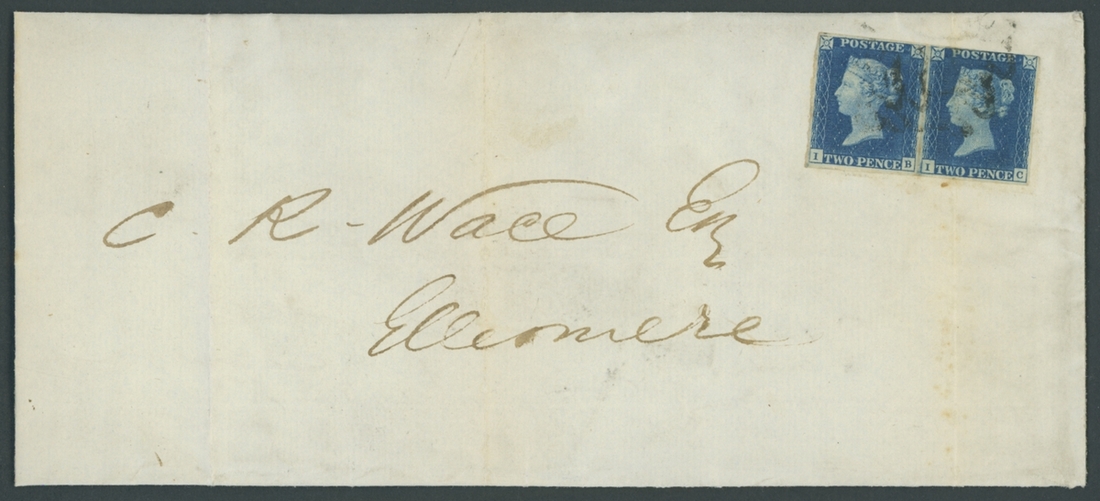 POSTAGE POSTAGE
I TWO PENCE B I TWO PENCE C
C R - Wace Esq
Ellesmere